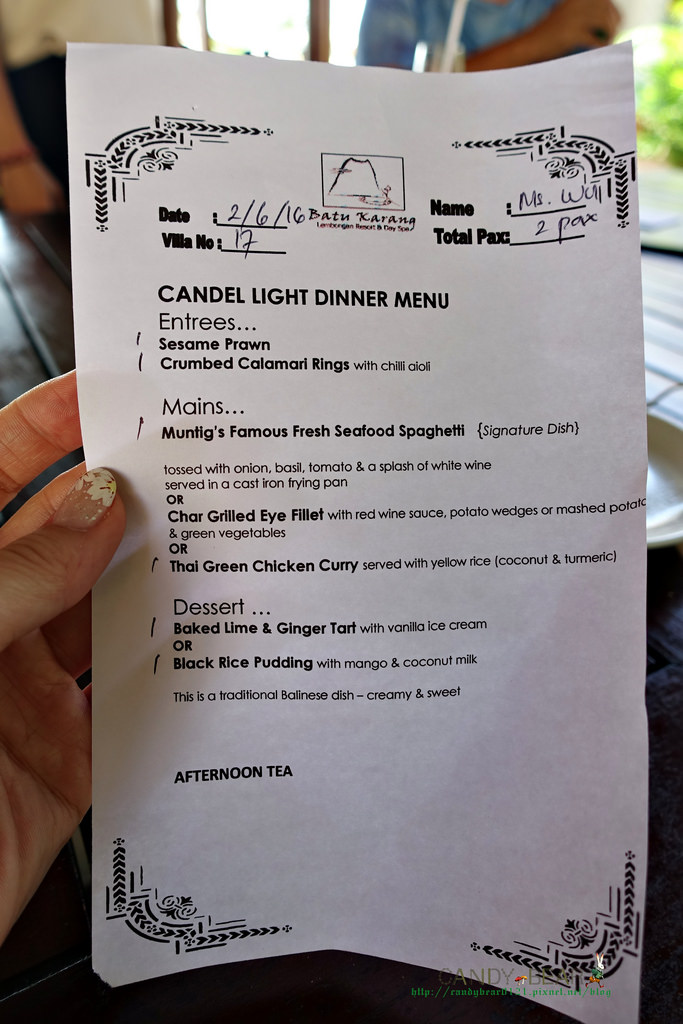 Batu Karang
Lembongan Resort & Day Spa
Date : 2/6/16
Villa No : 17
Name : Ms.
Total Pax: 2 pax
CANDEL LIGHT DINNER MENU
Entrees...
Sesame Prawn
Crumbed Calamari Rings with chilli aioli
Mains...
Muntig's Famous Fresh Seafood Spaghetti {Signature Dish}
tossed with onion, basil, tomato & a splash of white wine
served in a cast iron frying pan
OR
Char Grilled Eye Fillet with red wine sauce, potato wedges or mashed potato
& green vegetables
OR
Thai Green Chicken Curry served with yellow rice (coconut & turmeric)
Dessert ...
Baked Lime & Ginger Tart with vanilla ice cream
OR
Black Rice Pudding with mango & coconut milk
This is a traditional Balinese dish – creamy & sweet
AFTERNOON TEA
CANDY BEAR
http://candybear0121.pixnet.net/blog